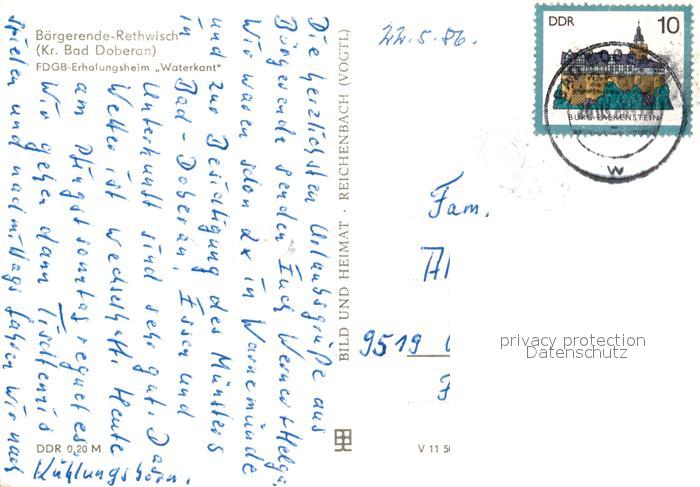 Börgerende-Rethwisch
(Kr. Bad Doberan)
FDGB-Erholungsheim „Waterkant"
22.5.86.
DDR 10
BURG FALKENSTEIN
W
Die herzlichsten Urlaubsgrüße aus
Börgerende senden Euch Werner + Helga.
Wir waren schon 2x in Warnemünde
und zur Besichtigung des Münsters
in Bad-Doberan. Essen und
Unterkunft sind sehr gut. Das
Wetter ist wechselhaft. Heute
am Pfingstsonntag regnet es.
Wir gehen dann Tischtennis
spielen und nachmittags fahren wir nach
Kühlungsborn.
BILD UND HEIMAT · REICHENBACH (VOGTL)
Fam.
9519
privacy protection
Datenschutz
DDR 0,20 M
V 11 50